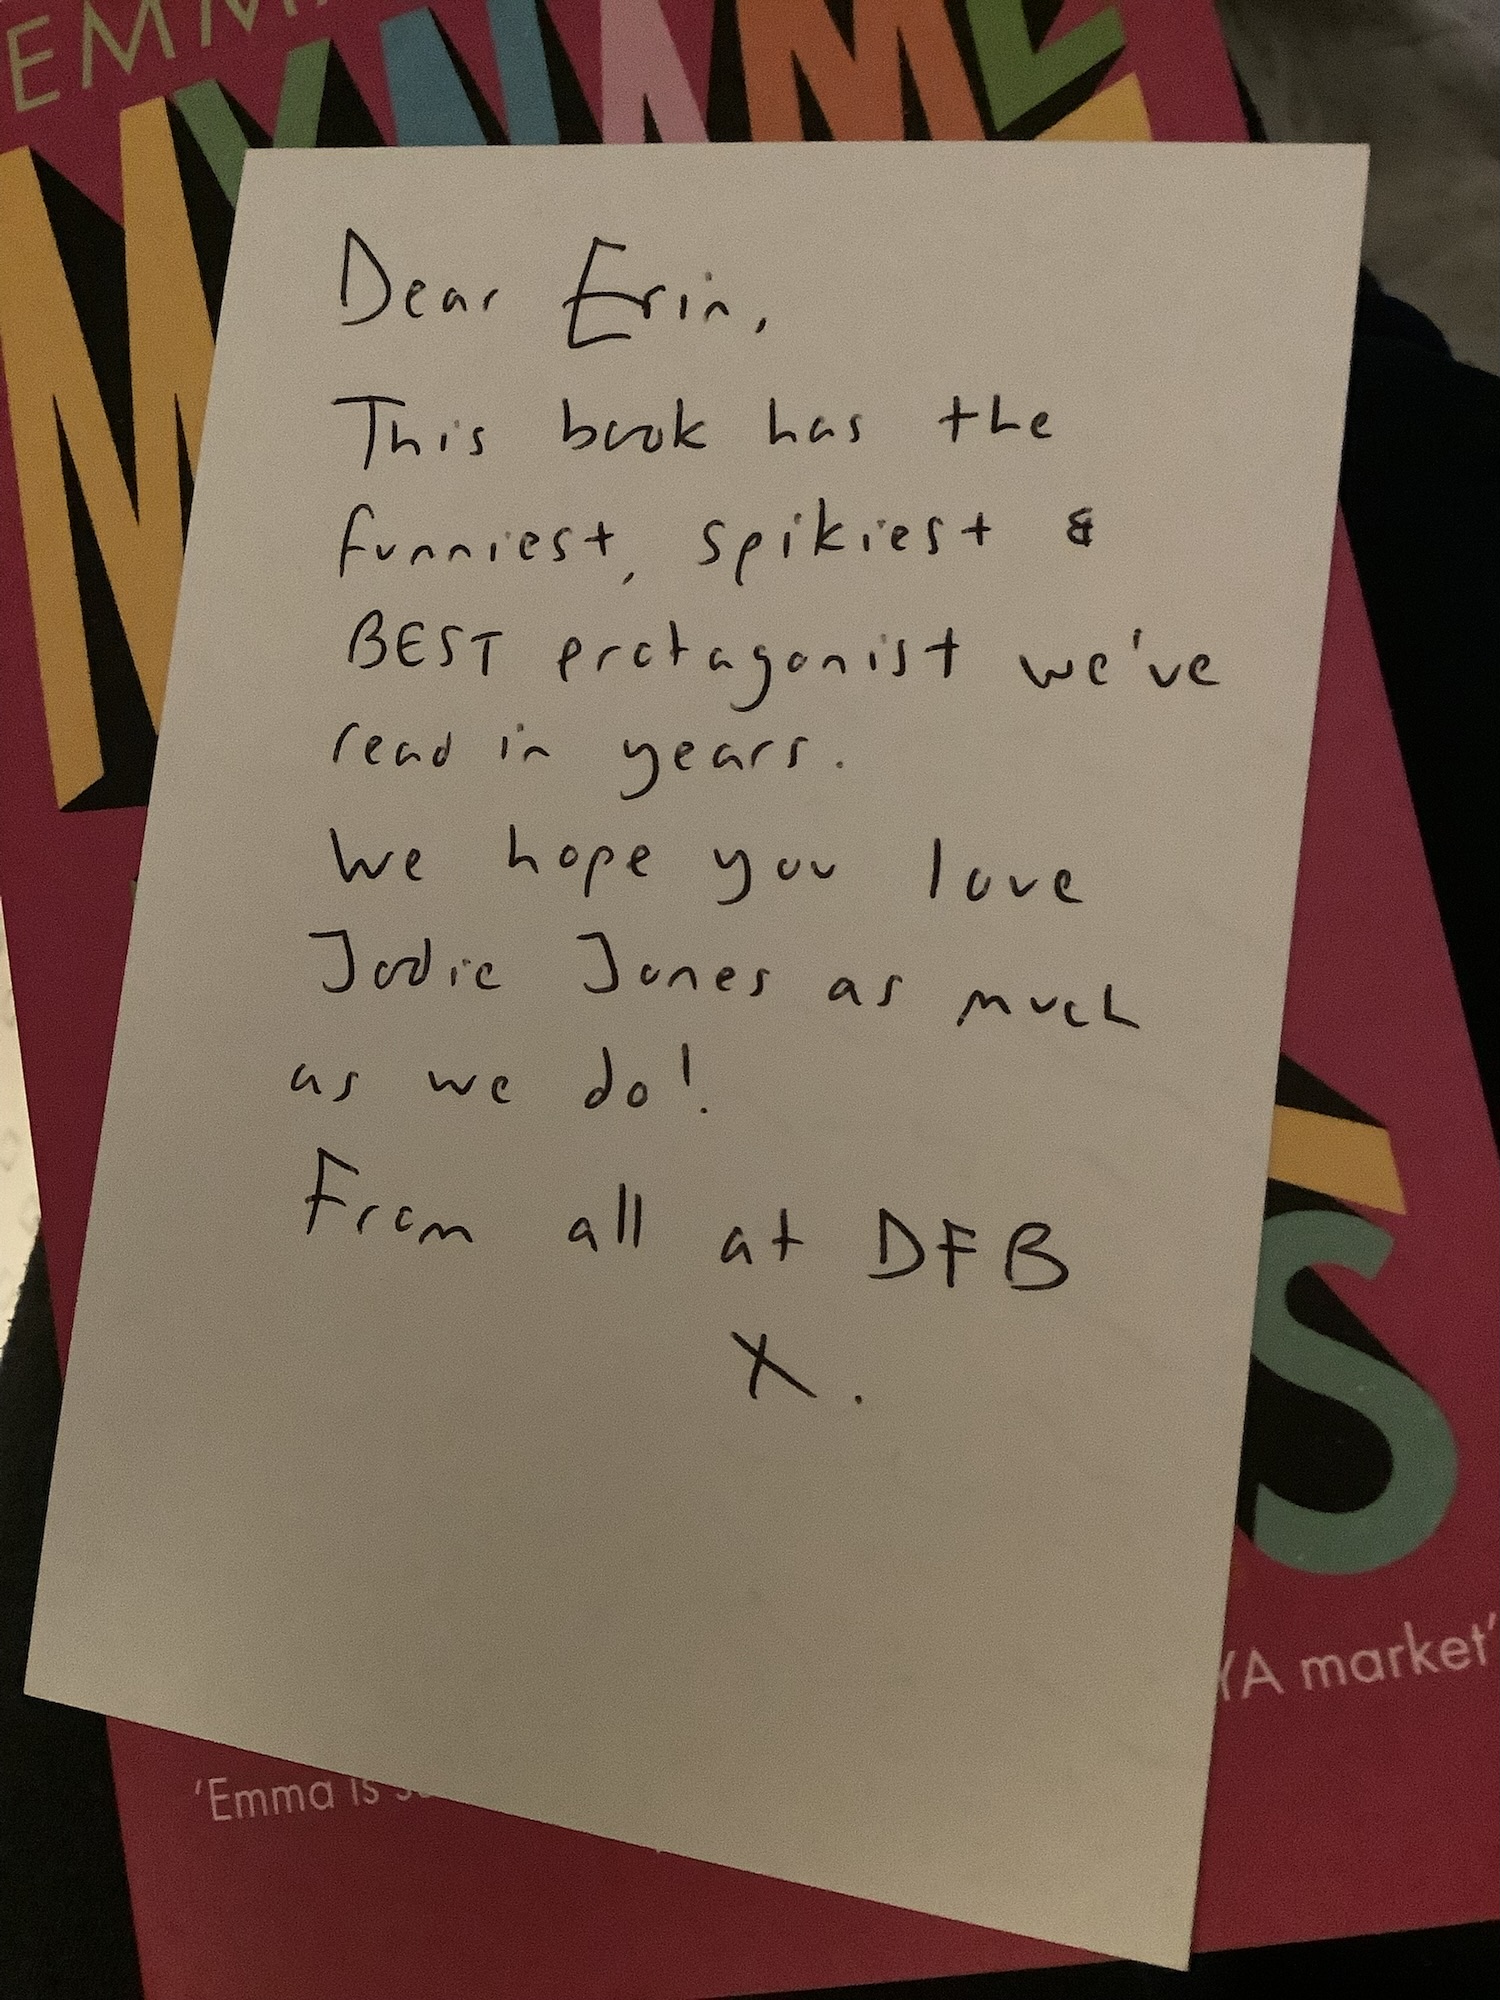 EMM
MY NAME
Dear Erin,
This book has the
funniest, spikiest &
BEST protagonist we've
read in years.
We hope you love
Jodie Jones as much
as we do!
From all at DFB
X.
S
YA market'
'Emma is